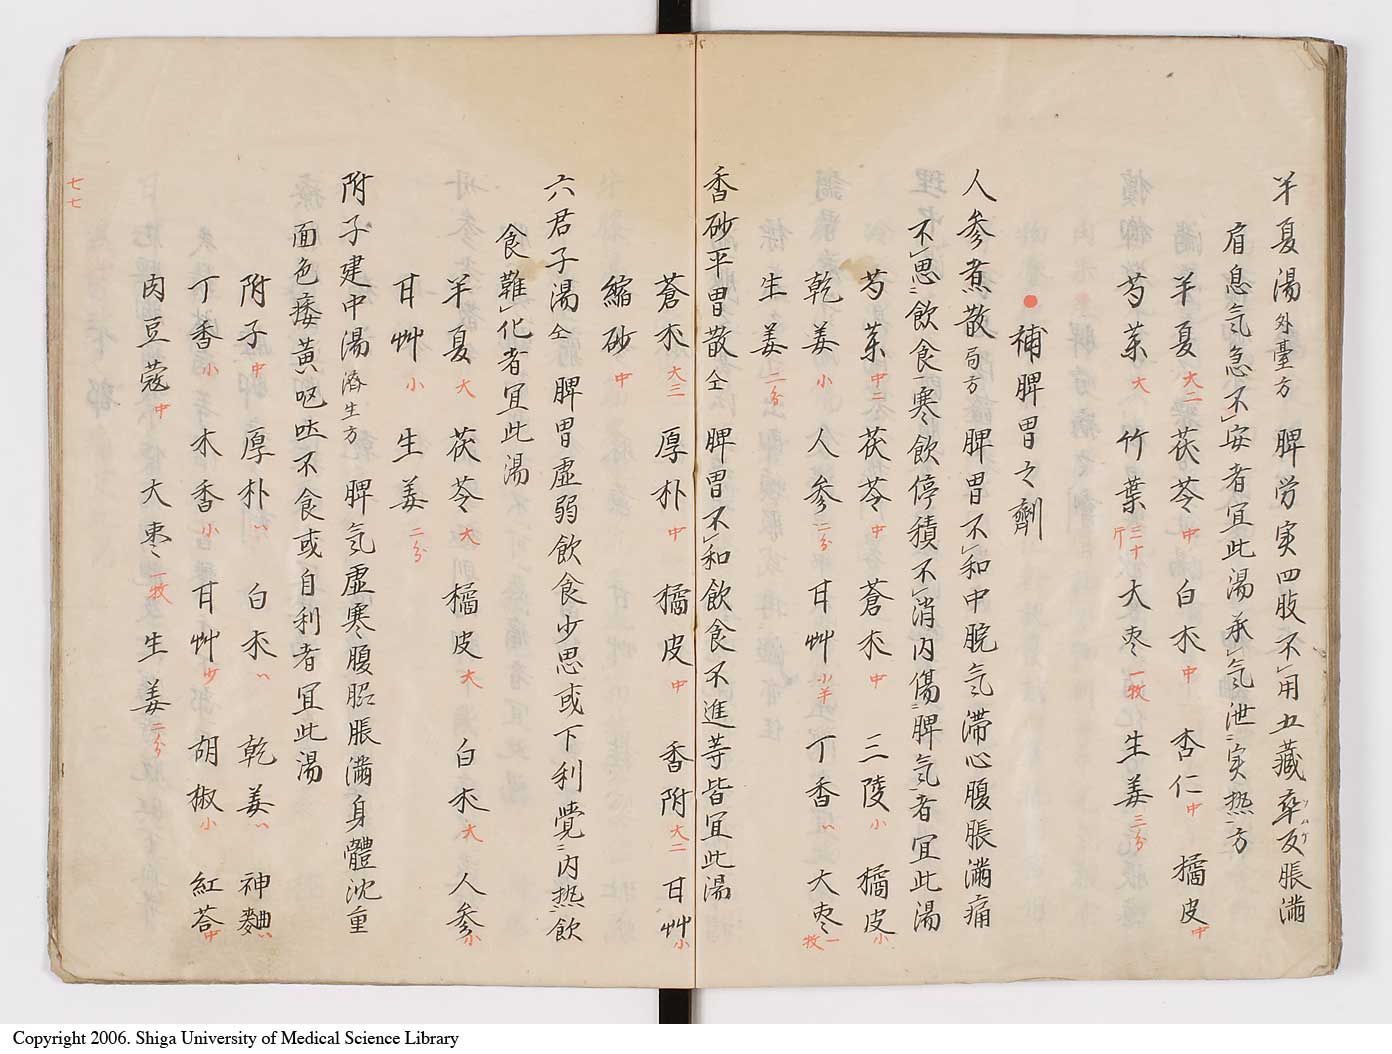 半夏湯 外臺方 脾労実四肢不用五藏卒反脹満
肩息気急不安者宜此湯承気泄実热方
半夏 大二 茯苓 中 白朮 中 杏仁 中 橘皮 中
芍薬 大 竹葉 三十斤 大枣 一牧 生姜 三分
補脾胃之劑
人参煮散 局方 脾胃不和中脘気滞心腹脹満痛
不思飲食寒飲停積不消内傷脾気者宜此湯
芍薬 中二 茯苓 中 蒼朮 中 三陵 小 橘皮 小
乾姜 小 人参 二分 甘艸 小半 丁香 〃 大枣 一牧
生姜 二分
香砂平胃散 仝 脾胃不和飲食不進等皆宜此湯
蒼朮 大三 厚朴 中 橘皮 中 香附 大二 甘艸 小
縮砂 中
六君子湯 仝 脾胃虚弱飲食少思或下利覺内热飲
食難化者宜此湯
半夏 大 茯苓 大 橘皮 大 白朮 大 人参 小
甘艸 小 生姜 二分
附子建中湯 済生方 脾気虚寒腹脹満身體沈重
面色痿黄呕吐不食或自利者宜此湯
附子 中 厚朴 〃 白朮 〃 乾姜 〃 神麯 〃
丁香 小 木香 小 甘艸 少 胡椒 小 紅荅 中
肉豆蔻 中 大枣 一牧 生姜 二分
七七
Copyright 2006. Shiga University of Medical Science Library